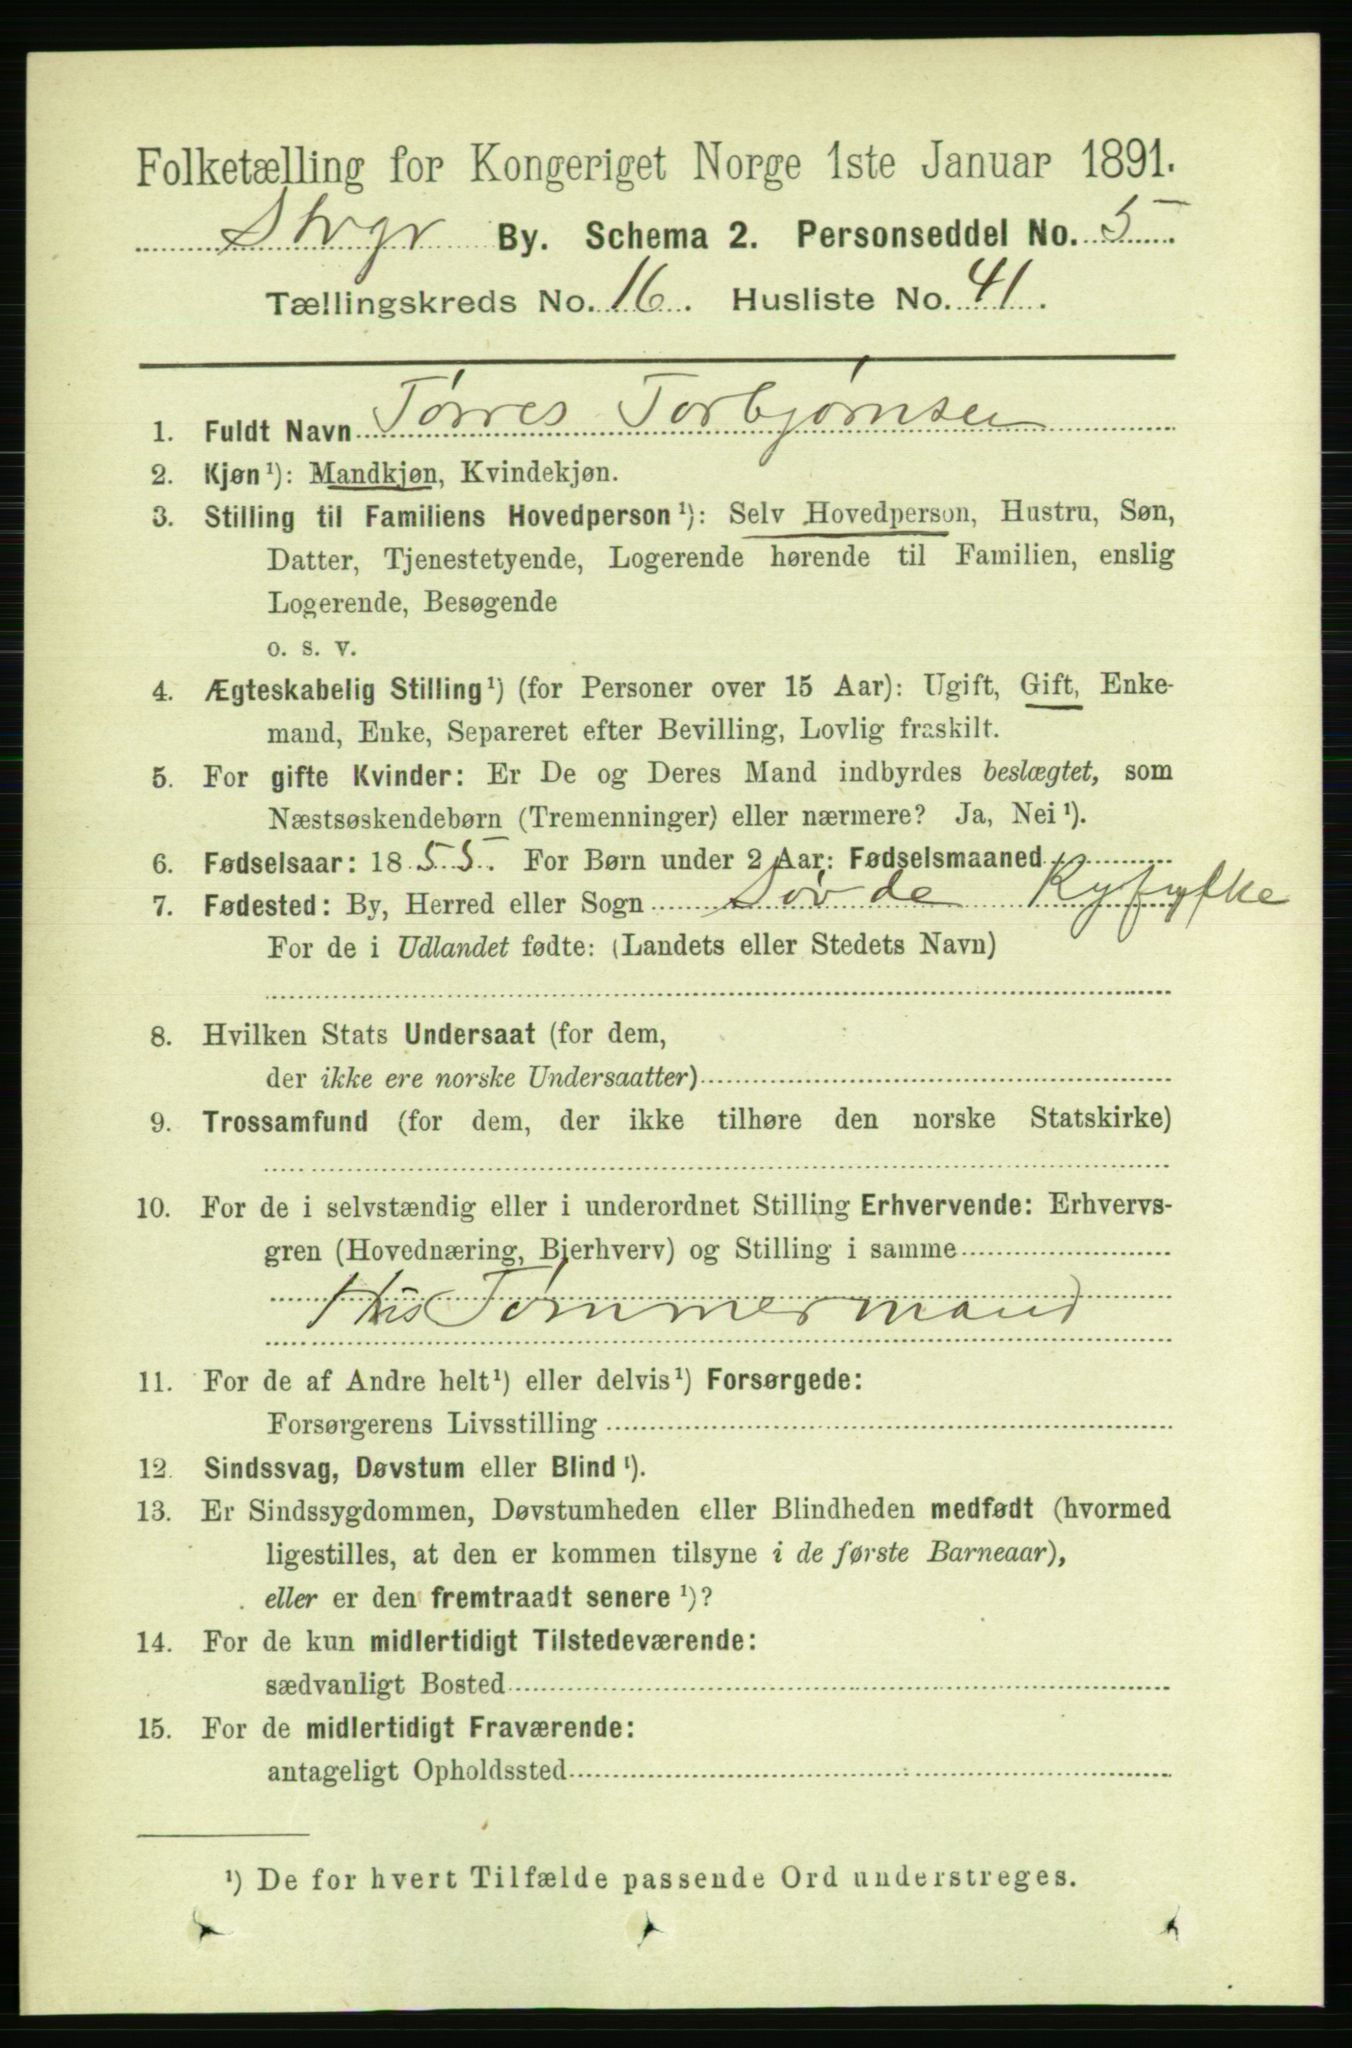 Folketælling for Kongeriget Norge 1ste Januar 1891.
Stvgr By. Schema 2. Personseddel No. 5
Tællingskreds No. 16. Husliste No. 41.
1. Fuldt Navn Tørres Torbjørnsen
2. Kjøn¹): Mandkjøn, Kvindekjøn.
3. Stilling til Familiens Hovedperson¹): Selv Hovedperson, Hustru, Søn,
Datter, Tjenestetyende, Logerende hørende til Familien, enslig
Logerende, Besøgende
o. s. v.
4. Ægteskabelig Stilling¹) (for Personer over 15 Aar): Ugift, Gift, Enke-
mand, Enke, Separeret efter Bevilling, Lovlig fraskilt.
5. For gifte Kvinder: Er De og Deres Mand indbyrdes beslægtet, som
Næstsøskendebørn (Tremenninger) eller nærmere? Ja, Nei¹).
6. Fødselsaar: 1855. For Børn under 2 Aar: Fødselsmaaned
7. Fødested: By, Herred eller Sogn Søvde Ryfylke
For de i Udlandet fødte: (Landets eller Stedets Navn)
8. Hvilken Stats Undersaat (for dem,
der ikke ere norske Undersaatter)
9. Trossamfund (for dem, der ikke tilhøre den norske Statskirke)
10. For de i selvstændig eller i underordnet Stilling Erhvervende: Erhvervs-
gren (Hovednæring, Bierhverv) og Stilling i samme
Hus Tømmermand
11. For de af Andre helt¹) eller delvis¹) Forsørgede:
Forsørgerens Livsstilling
12. Sindssvag, Døvstum eller Blind¹).
13. Er Sindssygdommen, Døvstumheden eller Blindheden medfødt (hvormed
ligestilles, at den er kommen tilsyne i de første Barneaar),
eller er den fremtraadt senere¹)?
14. For de kun midlertidigt Tilstedeværende:
sædvanligt Bosted
15. For de midlertidigt Fraværende:
antageligt Opholdssted
¹) De for hvert Tilfælde passende Ord understreges.